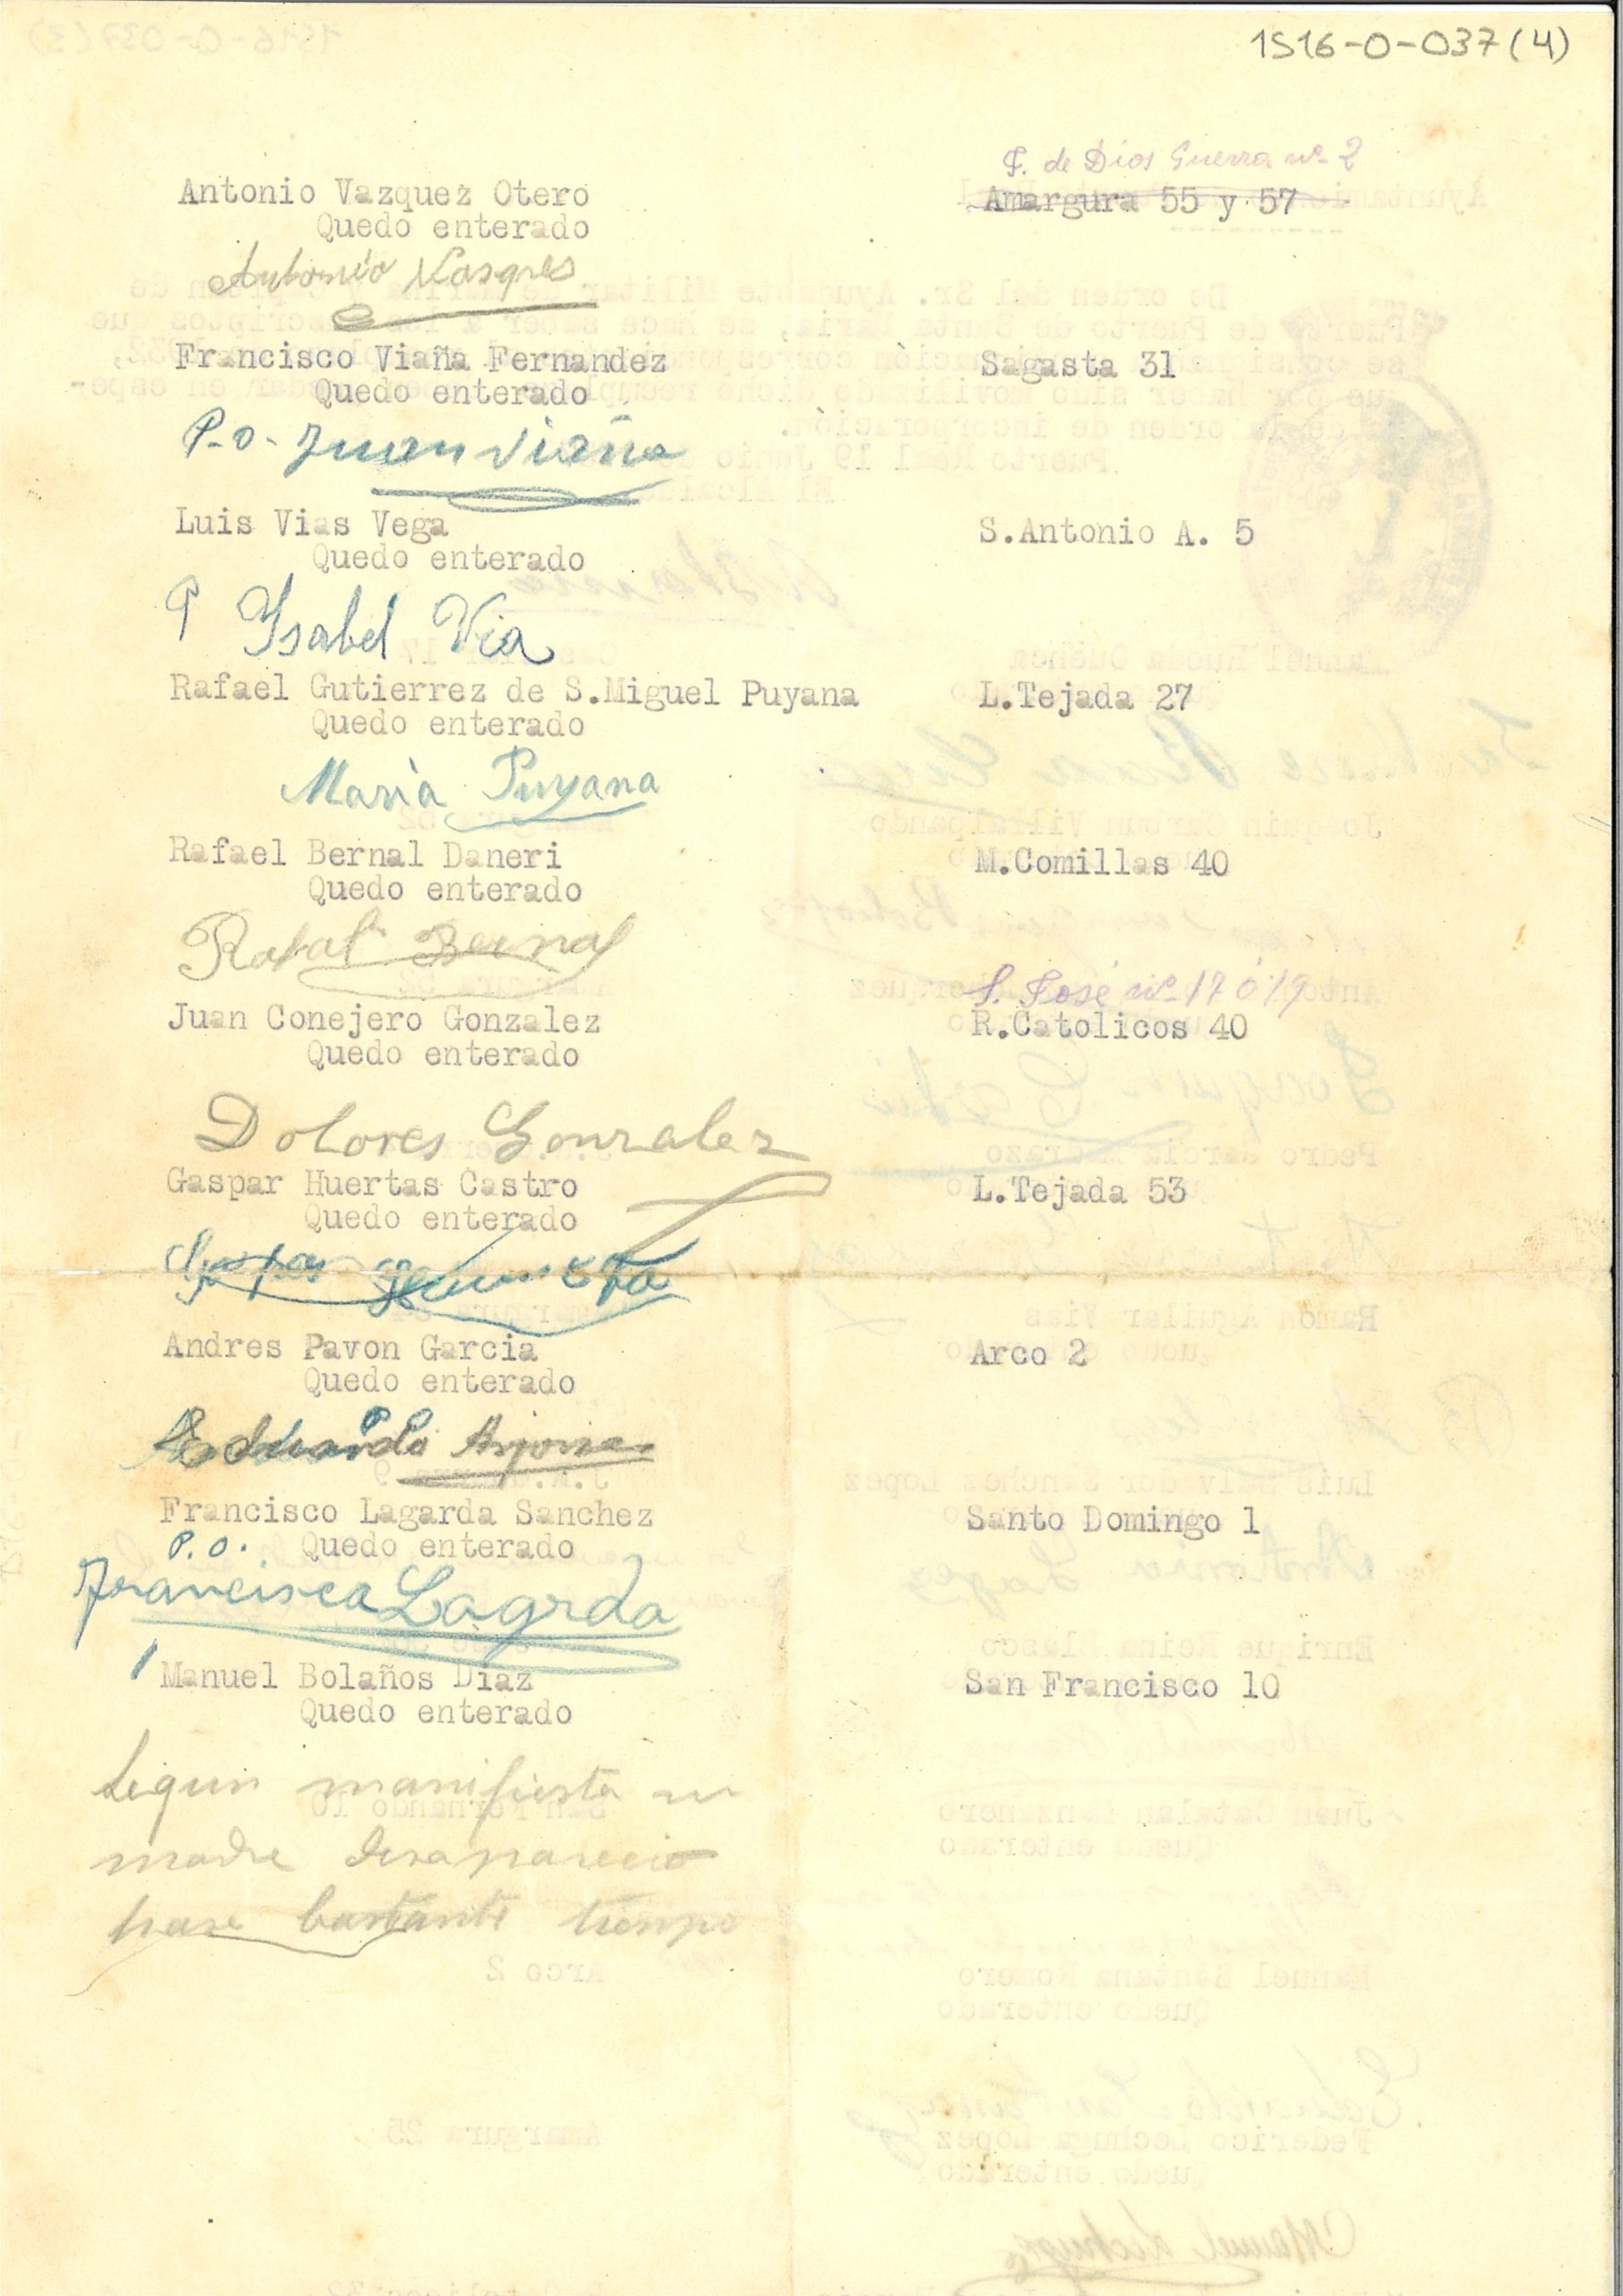 1516-0-037(4)
F. de Dios Guerra nº 2
Antonio Vazquez Otero
Amargura 55 y 57
Quedo enterado
Antonio Vasques
Francisco Viaña Fernandez
Sagasta 31
Quedo enterado
P-O- Juan Viaña
Luis Vias Vega
S.Antonio A. 5
Quedo enterado
P Ysabel Via
Rafael Gutierrez de S.Miguel Puyana
L.Tejada 27
Quedo enterado
Maria Puyana
Rafael Bernal Daneri
M.Comillas 40
Quedo enterado
Rafal Bernal
S. José nº 17 ó 19
Juan Conejero Gonzalez
R.Catolicos 40
Quedo enterado
Dolores Gonzalez
Gaspar Huertas Castro
L.Tejada 53
Quedo enterado
Andres Pavon Garcia
Arco 2
Quedo enterado
Eduardo Arjona
Francisco Lagarda Sanchez
Santo Domingo 1
P.O. Quedo enterado
Francisca Lagrda
Manuel Bolaños Diaz
San Francisco 10
Quedo enterado
Segun manifiesta su
madre desaparecio
hase bastante tiempo